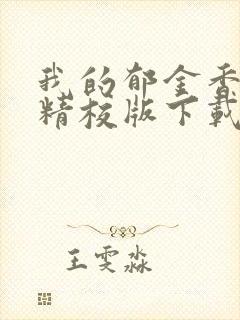 我的郁金香
精校版下载
王雯淼